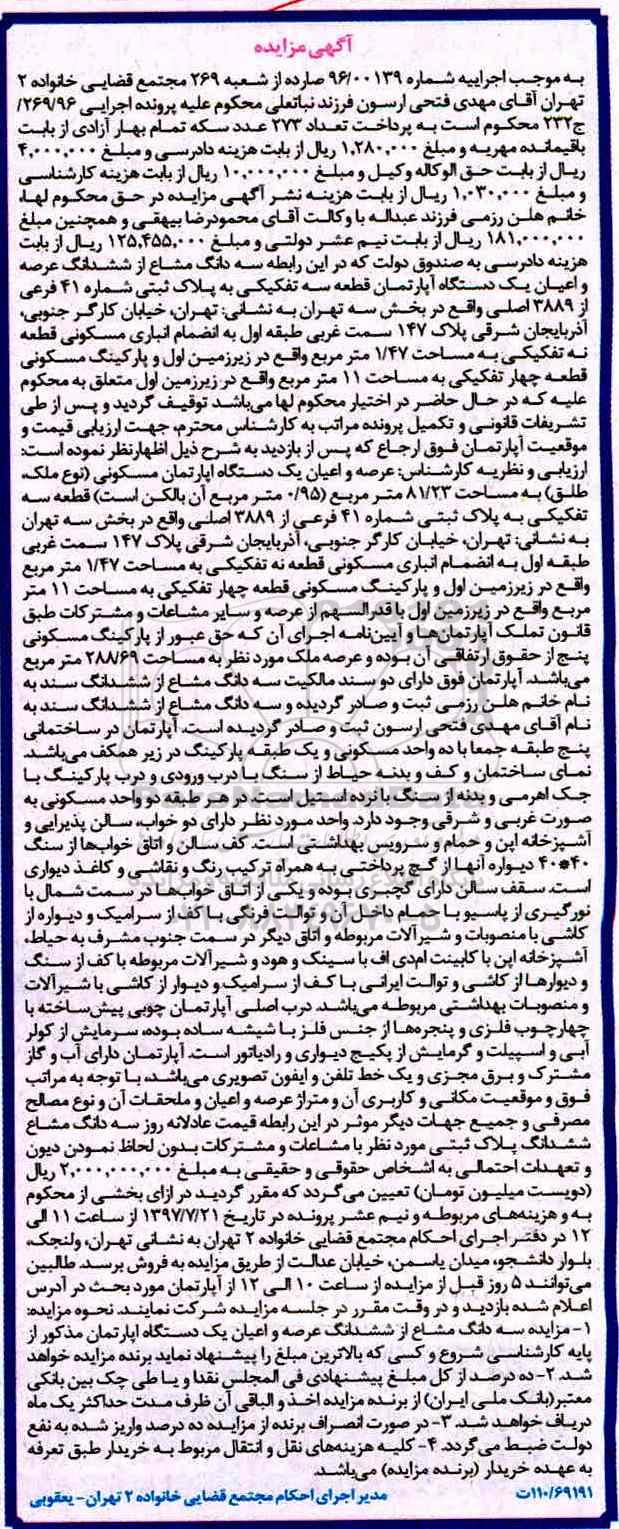 آگهی مزایده
به موجب اجراییه شماره ۹۶/۰۰۱۳۹ صادره از شعبه ۲۶۹ مجتمع قضایی خانواده ۲
تهران آقای مهدی فتحی ارسون فرزند نباتعلی محکوم علیه پرونده اجرایی ۲۶۹/۹۶/
ج۲۳۲ محکوم است به پرداخت تعداد ۲۷۳ عدد سکه تمام بهار آزادی از بابت
باقیمانده مهریه و مبلغ ۱,۲۸۰,۰۰۰ ریال از بابت هزینه دادرسی و مبلغ ۴,۰۰۰,۰۰۰
ریال از بابت حق الوکاله وکیل و مبلغ ۱۰,۰۰۰,۰۰۰ ریال از بابت هزینه کارشناسی
و مبلغ ۱,۰۳۰,۰۰۰ ریال از بابت هزینه نشر آگهی مزایده در حق محکوم لها،
خانم هلن رزمی فرزند عبداله با وکالت آقای محمودرضا بیهقی و همچنین مبلغ
۱۸۱,۰۰۰,۰۰۰ ریال از بابت نیم عشر دولتی و مبلغ ۱۲۵,۴۵۵,۰۰۰ ریال از بابت
هزینه دادرسی به صندوق دولت که در این رابطه سه دانگ مشاع از ششدانگ عرصه
و اعیان یک دستگاه آپارتمان قطعه سه تفکیکی به پلاک ثبتی شماره ۴۱ فرعی
از ۳۸۸۹ اصلی واقع در بخش سه تهران به نشانی: تهران، خیابان کارگر جنوبی،
آذربایجان شرقی پلاک ۱۴۷ سمت غربی طبقه اول به انضمام انباری مسکونی قطعه
نه تفکیکی به مساحت ۱/۴۷ متر مربع واقع در زیرزمین اول و پارکینگ مسکونی
قطعه چهار تفکیکی به مساحت ۱۱ متر مربع واقع در زیرزمین اول متعلق به محکوم
علیه که در حال حاضر در اختیار محکوم لها می‌باشد توقیف گردید و پس از طی
تشریفات قانونی و تکمیل پرونده مراتب به کارشناس محترم، جهت ارزیابی قیمت و
موقعیت آپارتمان فوق ارجاع که پس از بازدید به شرح ذیل اظهارنظر نموده است:
ارزیابی و نظریه کارشناس: عرصه و اعیان یک دستگاه اپارتمان مسکونی (نوع ملک،
طلق) به مساحت ۸۱/۲۳ متر مربع (۰/۹۵ متر مربع آن بالکن است) قطعه سه
تفکیکی به پلاک ثبتی شماره ۴۱ فرعی از ۳۸۸۹ اصلی واقع در بخش سه تهران
به نشانی: تهران، خیابان کارگر جنوبی، آذربایجان شرقی پلاک ۱۴۷ سمت غربی
طبقه اول به انضمام انباری مسکونی قطعه نه تفکیکی به مساحت ۱/۴۷ متر مربع
واقع در زیرزمین اول و پارکینگ مسکونی قطعه چهار تفکیکی به مساحت ۱۱ متر
مربع واقع در زیرزمین اول با قدرالسهم از عرصه و سایر مشاعات و مشترکات طبق
قانون تملک آپارتمان‌ها و آیین‌نامه اجرای آن که حق عبور از پارکینگ مسکونی
پنج از حقوق ارتفاقی آن بوده و عرصه ملک مورد نظر به مساحت ۲۸۸/۶۹ متر مربع
می‌باشد. آپارتمان فوق دارای دو سند مالکیت سه دانگ مشاع از ششدانگ سند به
نام خانم هلن رزمی ثبت و صادر گردیده و سه دانگ مشاع از ششدانگ سند به
نام آقای مهدی فتحی ارسون ثبت و صادر گردیده است. آپارتمان در ساختمانی
پنج طبقه جمعا با ده واحد مسکونی و یک طبقه پارکینگ در زیر همکف می‌باشد.
نمای ساختمان و کف و بدنه حیاط از سنگ با درب ورودی و درب پارکینگ با
جک اهرمی و بدنه از سنگ با نرده استیل است. در هر طبقه دو واحد مسکونی به
صورت غربی و شرقی وجود دارد. واحد مورد نظر دارای دو خواب، سالن پذیرایی و
آشپزخانه اپن و حمام و سرویس بهداشتی است. کف سالن و اتاق خواب‌ها از سنگ
۴۰*۴۰ دیواره آنها از گچ پرداختی به همراه ترکیب رنگ و نقاشی و کاغذ دیواری
است. سقف سالن دارای گچبری بوده و یکی از اتاق خواب‌ها در سمت شمال با
نورگیری از پاسیو با حمام داخل آن و توالت فرنگی با کف از سرامیک و دیواره از
کاشی با منصوبات و شیرآلات مربوطه و اتاق دیگر در سمت جنوب مشرف به حیاط،
آشپزخانه اپن با کابینت ام‌دی اف با سینک و هود و شیرآلات مربوطه با کف از سنگ
و دیوارها از کاشی و توالت ایرانی با کف از سرامیک و دیوار از کاشی با شیرآلات
و منصوبات بهداشتی مربوطه می‌باشد. درب اصلی آپارتمان چوبی پیش‌ساخته با
چهارچوب فلزی و پنجره‌ها از جنس فلز با شیشه ساده بوده، سرمایش از کولر
آبی و اسپیلت و گرمایش از پکیج دیواری و رادیاتور است. آپارتمان دارای آب و گاز
مشترک و برق مجزی و یک خط تلفن و ایفون تصویری می‌باشد، با توجه به مراتب
فوق و موقعیت مکانی و کاربری آن و متراژ عرصه و اعیان و ملحقات آن و نوع مصالح
مصرفی و جمیع جهات دیگر موثر در این رابطه قیمت عادلانه روز سه دانگ مشاع
ششدانگ پلاک ثبتی مورد نظر با مشاعات و مشترکات بدون لحاظ نمودن دیون
و تعهدات احتمالی به اشخاص حقوقی و حقیقی به مبلغ ۲,۰۰۰,۰۰۰,۰۰۰ ریال
(دویست میلیون تومان) تعیین می‌گردد که مقرر گردید در ازای بخشی از محکوم
به و هزینه‌های مربوطه و نیم عشر پرونده در تاریخ ۱۳۹۷/۷/۲۱ از ساعت ۱۱ الی
۱۲ در دفتر اجرای احکام مجتمع قضایی خانواده ۲ تهران به نشانی تهران، ولنجک،
بلوار دانشجو، میدان یاسمن، خیابان عدالت از طریق مزایده به فروش برسد. طالبین
می‌توانند ۵ روز قبل از مزایده از ساعت ۱۰ الی ۱۲ از آپارتمان مورد بحث در آدرس
اعلام شده بازدید و در وقت مقرر در جلسه مزایده شرکت نمایند. نحوه مزایده:
۱- مزایده سه دانگ مشاع از ششدانگ عرصه و اعیان یک دستگاه اپارتمان مذکور از
پایه کارشناسی شروع و کسی که بالاترین مبلغ را پیشنهاد نماید برنده مزایده خواهد
شد. ۲- ده درصد از کل مبلغ پیشنهادی فی المجلس نقدا و یا طی چک بین بانکی
معتبر(بانک ملی ایران) از برنده مزایده اخذ و الباقی آن ظرف مدت حداکثر یک ماه
دریاف خواهد شد. ۳- در صورت انصراف برنده از مزایده ده درصد واریز شده به نفع
دولت ضبط می‌گردد. ۴- کلیه هزینه‌های نقل و انتقال مربوط به خریدار طبق تعرفه
به عهده خریدار (برنده مزایده) می‌باشد.
مدیر اجرای احکام مجتمع قضایی خانواده ۲ تهران- یعقوبی
۱۱۰/۶۹۱۹۱ت